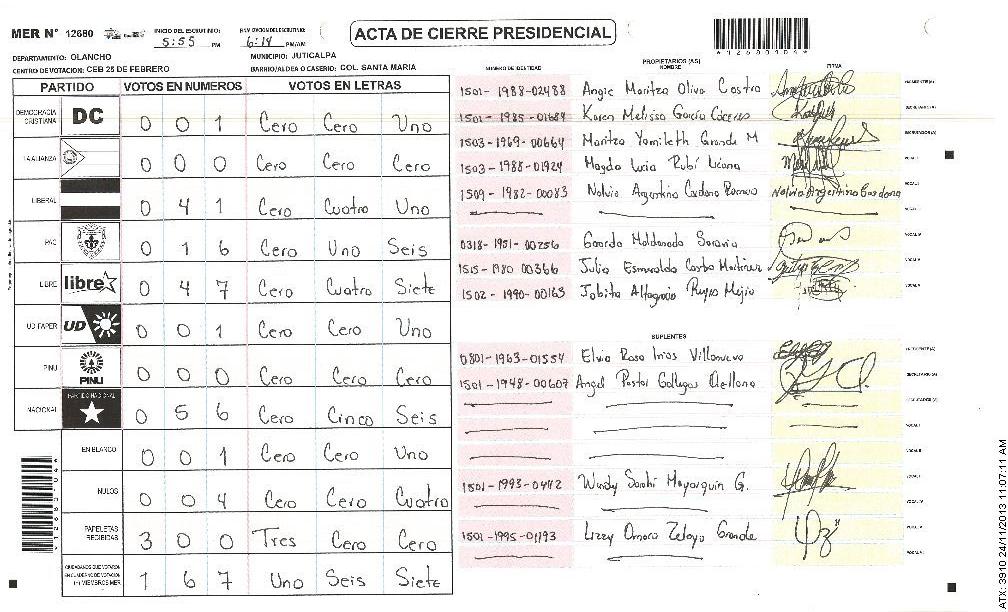 MER N° 12680
INICIO DEL ESCRUTINIO: 5:55 PM
6:14 PM/AM
ACTA DE CIERRE PRESIDENCIAL
DEPARTAMENTO: OLANCHO
MUNICIPIO: JUTICALPA
CENTRO DE VOTACION: CEB 25 DE FEBRERO
BARRIO/ALDEA O CASERIO: COL. SANTA MARIA
PARTIDO VOTOS EN NUMEROS VOTOS EN LETRAS
DEMOCRACIA CRISTIANA DC 0 0 1 Cero Cero Uno
LA ALIANZA 0 0 0 Cero Cero Cero
LIBERAL 0 4 1 Cero Cuatro Uno
PAC 0 1 6 Cero Uno Seis
LIBRE libre 0 4 7 Cero Cuatro Siete
UD FAPER UD 0 0 1 Cero Cero Uno
PINU PINU 0 0 0 Cero Cero Cero
NACIONAL PARTIDO NACIONAL 0 5 6 Cero Cinco Seis
EN BLANCO 0 0 1 Cero Cero Uno
NULOS 0 0 4 Cero Cero Cuatro
PAPELETAS RECIBIDAS 3 0 0 Tres Cero Cero
CIUDADANOS QUE VOTARON 1 6 7 Uno Seis Siete
NUMERO DE IDENTIDAD
PROPIETARIOS (AS)
NOMBRE
FIRMA
1501-1988-02488 Angie Maritza Oliva Castro
1501-1985-01684 Karen Melissa García
1503-1969-00664 Maritza Yamileth Grande M
1503-1988-01924 Magda Lucia Rubí
1509-1982-00083 Nolvia Argentina Cardona
0318-1951-00256 Maldonado
1515-1980 00366 Julia Esmeralda Martinez
1502-1990-00163 Reyes Mejia
SUPLENTES
0801-1963-01554 Elvia Rosa Villanueva
1501-1948-00607 Angel Pastor Gallegos Orellana
1501-1993-04112 Wendy Sarahi Mayorquin G.
1501-1995-01193 Lizzy Omara Zelaya Grande
ATX: 3910 24/11/2013 11:07:11 AM